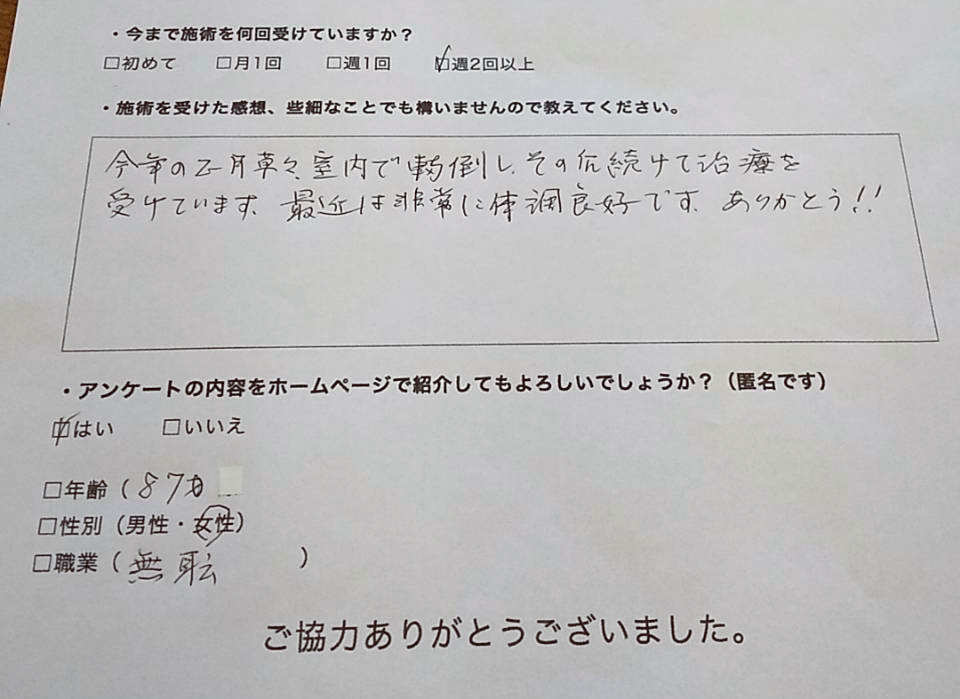 ・今まで施術を何回受けていますか？
□初めて □月1回 □週1回 ☑週2回以上
・施術を受けた感想、些細なことでも構いませんので教えてください。
今年の正月草々室内で転倒し、その后続けて治療を
受けています。最近は非常に体調良好です。ありがとう!!
・アンケートの内容をホームページで紹介してもよろしいでしょうか？（匿名です）
☑はい □いいえ
□年齢（87才
□性別（男性・女性）
□職業（無職）
ご協力ありがとうございました。